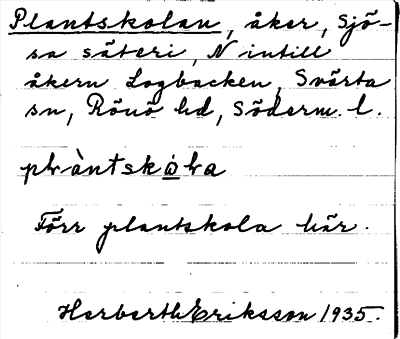 Plantskolan, åker, Sjö-
sa säteri, N intill
åkern Logbacken, Svärta
sn, Rönö hd, Söderm. l.
Förr plantskola här.
Harberth Eriksson 1935.